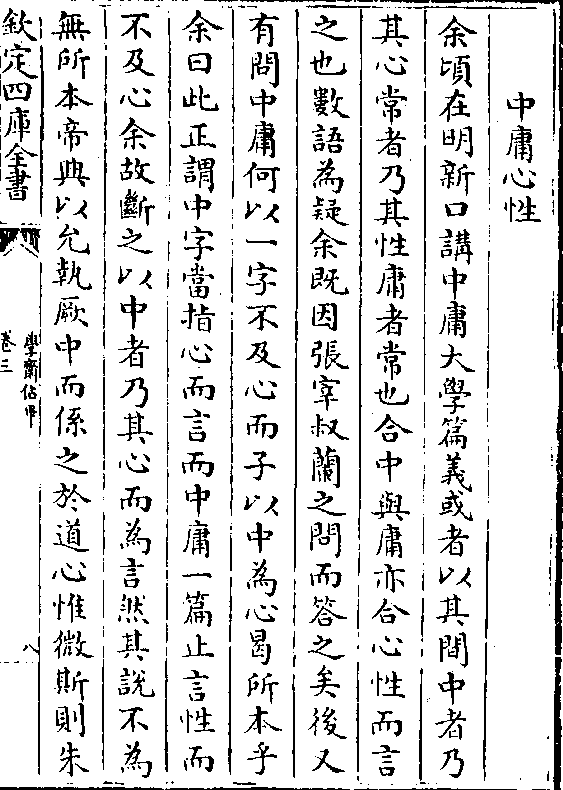 中庸心性
余頃在明新口講中庸大學篇義或者以其間中者乃
其心常者乃其性庸者常也合中與庸亦合心性而言
之也數語為疑余既因張宰叔蘭之問而答之矣後又
有問中庸何以一字不及心而子以中為心曷所本乎
余曰此正謂中字當指心而言而中庸一篇止言性而
不及心余故斷之以中者乃其心而為言然其說不為
無所本帝典以允執厥中而係之於道心惟微斯則朱
欽定四庫全書
學齋佔畢
卷三
八